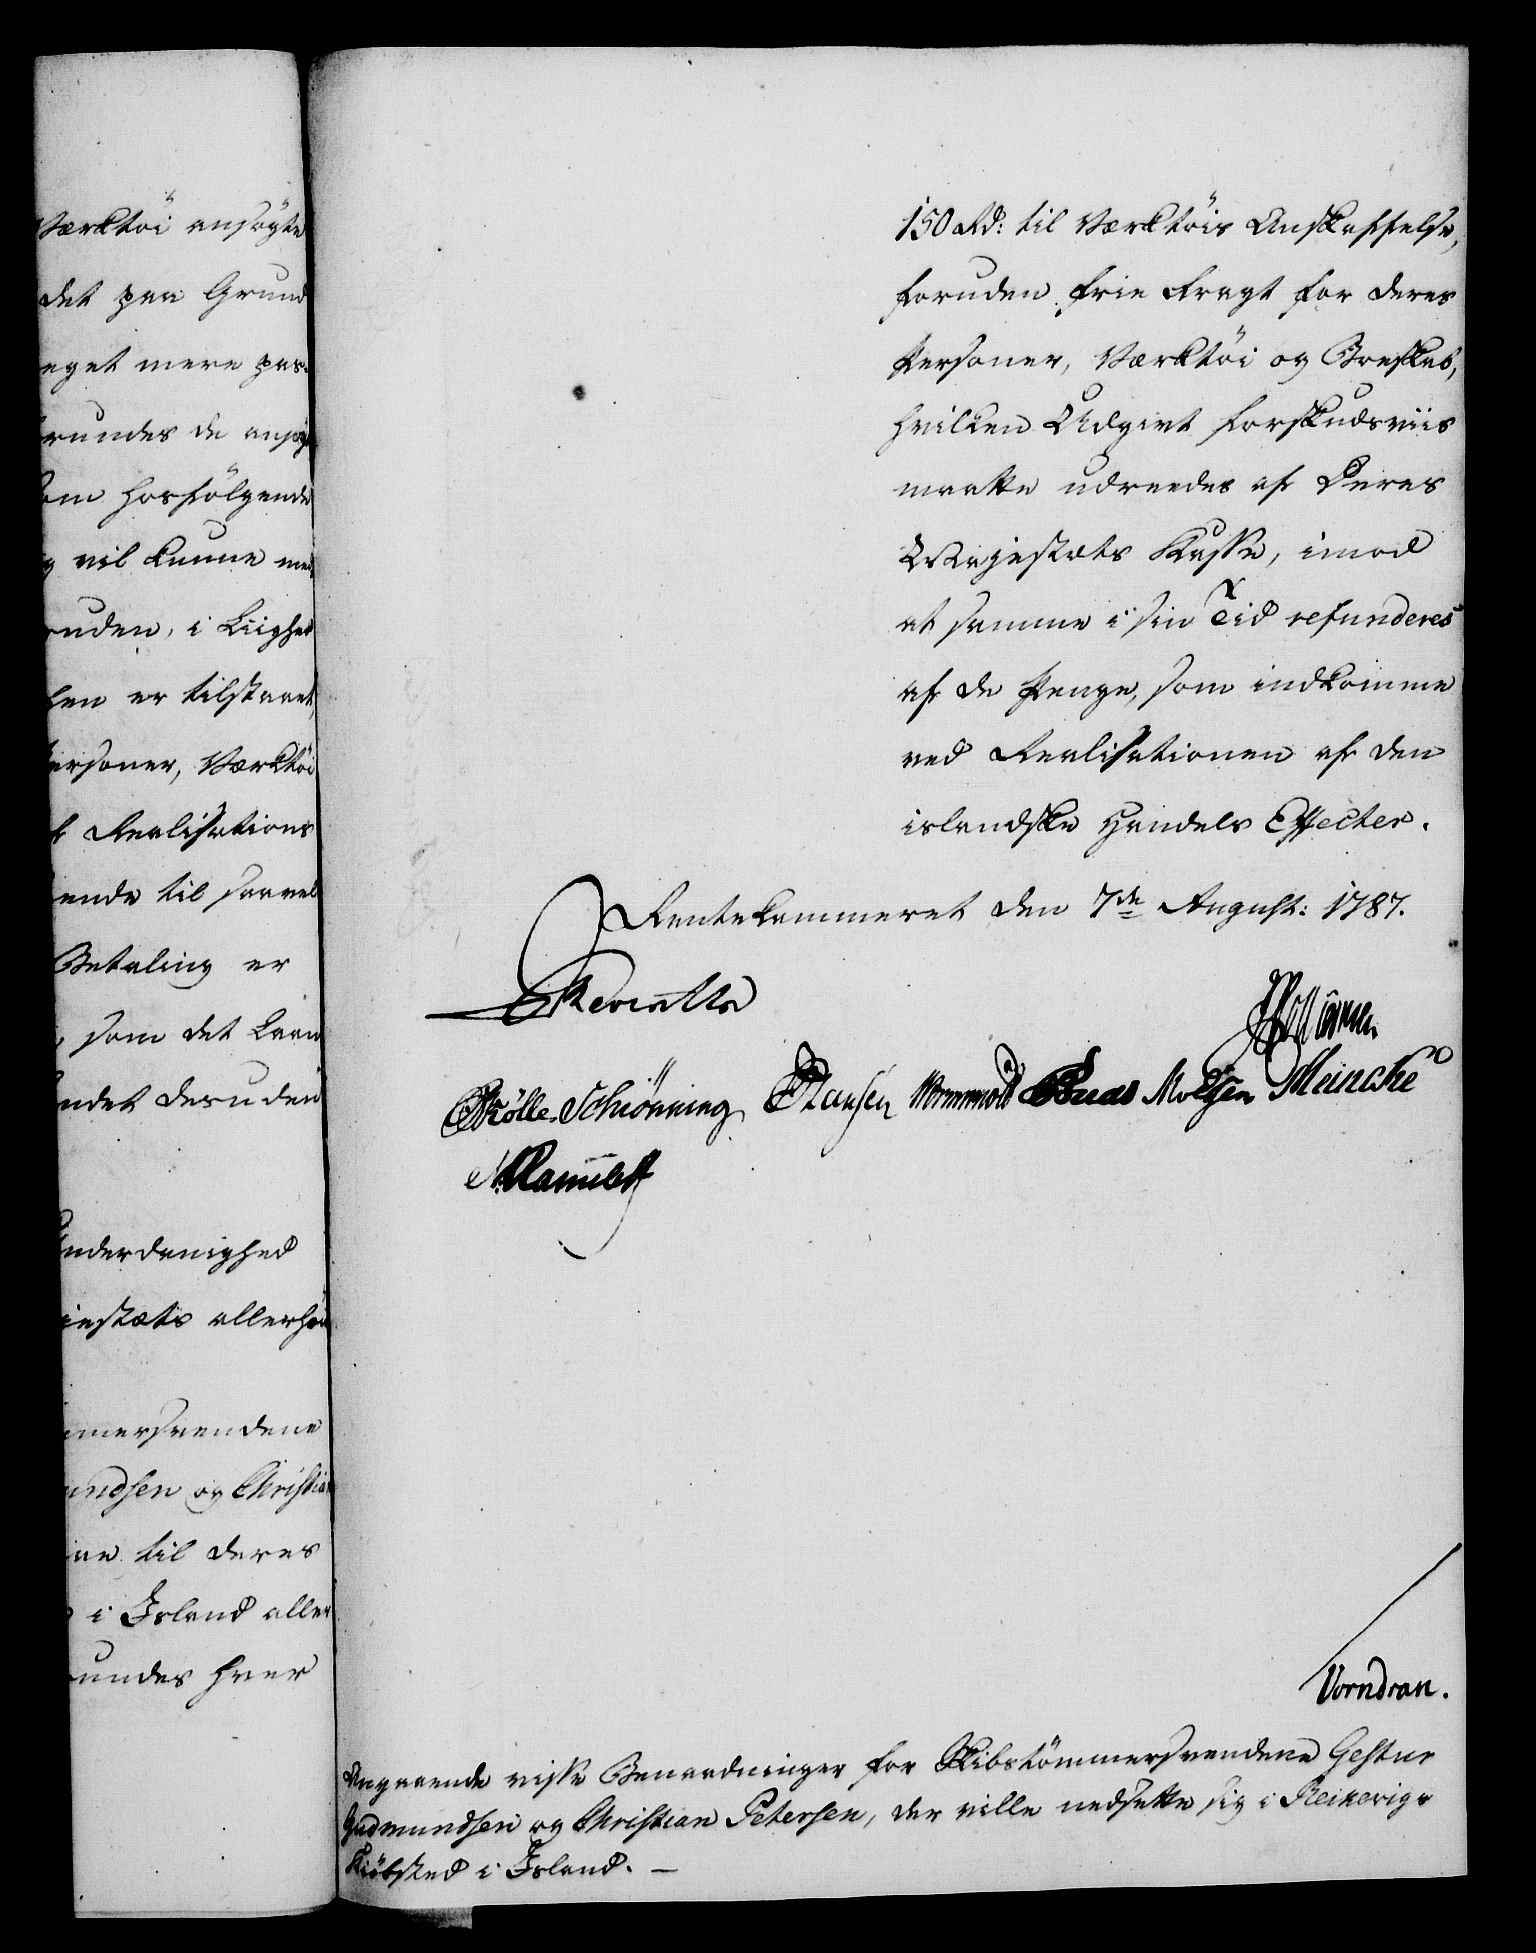 Værktöi ansögte
det paa Grund
eget mere pas-
rundes de ansög
om hosfölgende
vil kunne med
ruden, i Liighed
hen er tilstaaet,
ersoner, Værktöi
Realisations
ende til saavel
Betaling er
som det kan
ndet desuden
nderdanighed
iestæts allerhöi
mersvendene
undsen og Christian
til deres
i Island aller
undes hver
150 Rd: til Værktöis Anskaffelse,
foruden frie Fragt for deres
Personer, Værktöi og Boeskab,
hvilken Udgivt forskudsviis
maatte udreedes af Deres
Majestæts Kasse, imod
at samme i sin Tid refunderes
af de Penge, som indkomme
ved Realisationen af den
islandske Handels Effecter.
Rentekammeret den 7de August: 1787.
Reventlo
Prölle Schiönning Clausen Wormwold Buas Moltzen Meincke
Vorndran.
Angaaende visse Benaadninger for Skibstömmersvendene Gestur
Gudmundsen og Christian Petersen, der ville nedsette sig i Reikevigs
Kiöbsted i Island. —